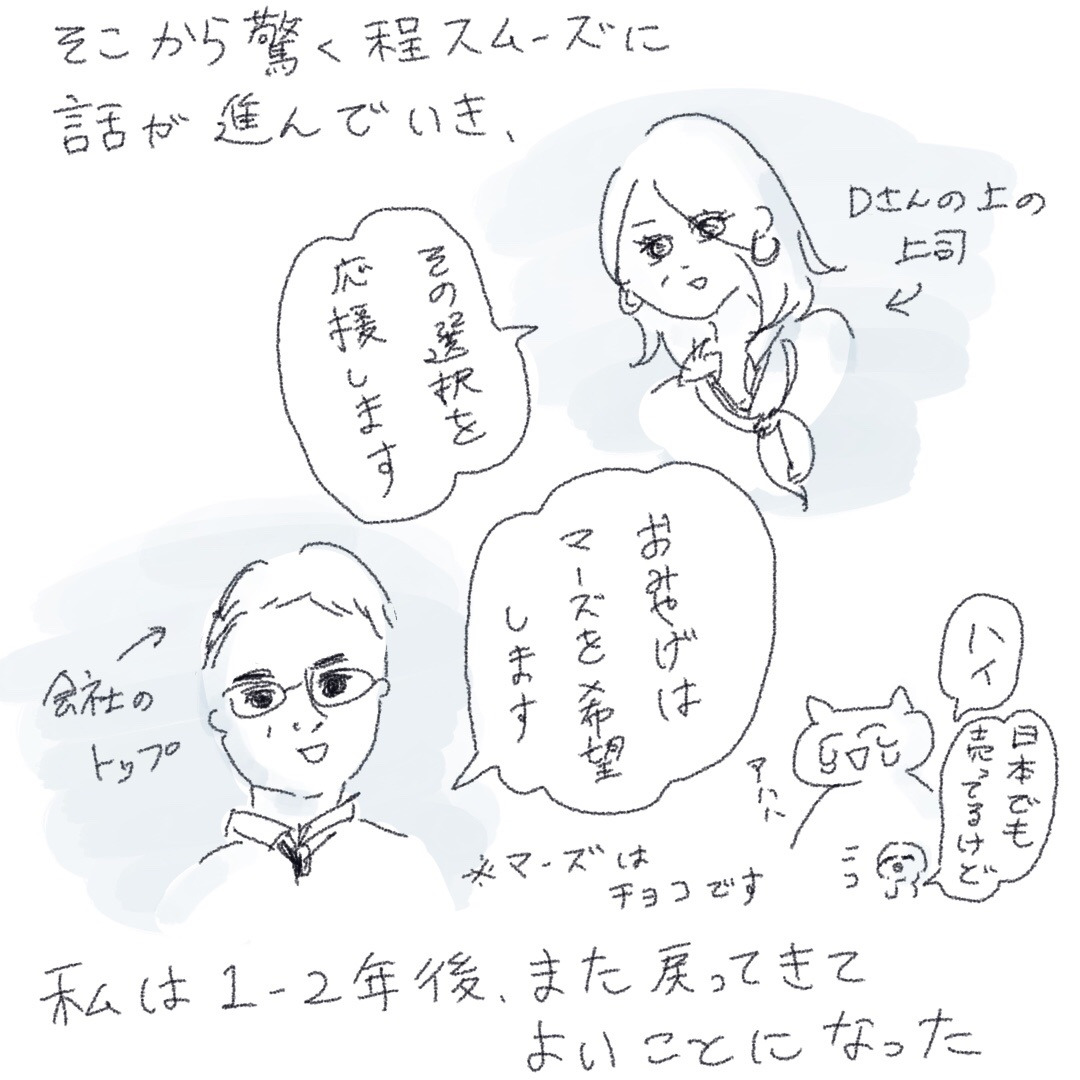 そこから驚く程スムーズに
話が進んでいき、
Dさんの上の
上司
その選択を
応援します
おみやげは
マーズを希望
します
会社の
トップ
※マーズは
チョコです
ハイ
日本でも
売ってるけど
ニコ
私は1-2年後、また戻ってきて
よいことになった